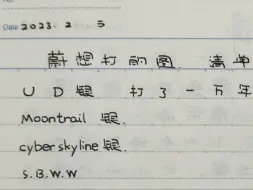 Date 2023. 2. 5
蔚想打的图 清单
UD疑 打了一万年
Moontrail 疑.
cyberskyline 疑.
S.B.W.W